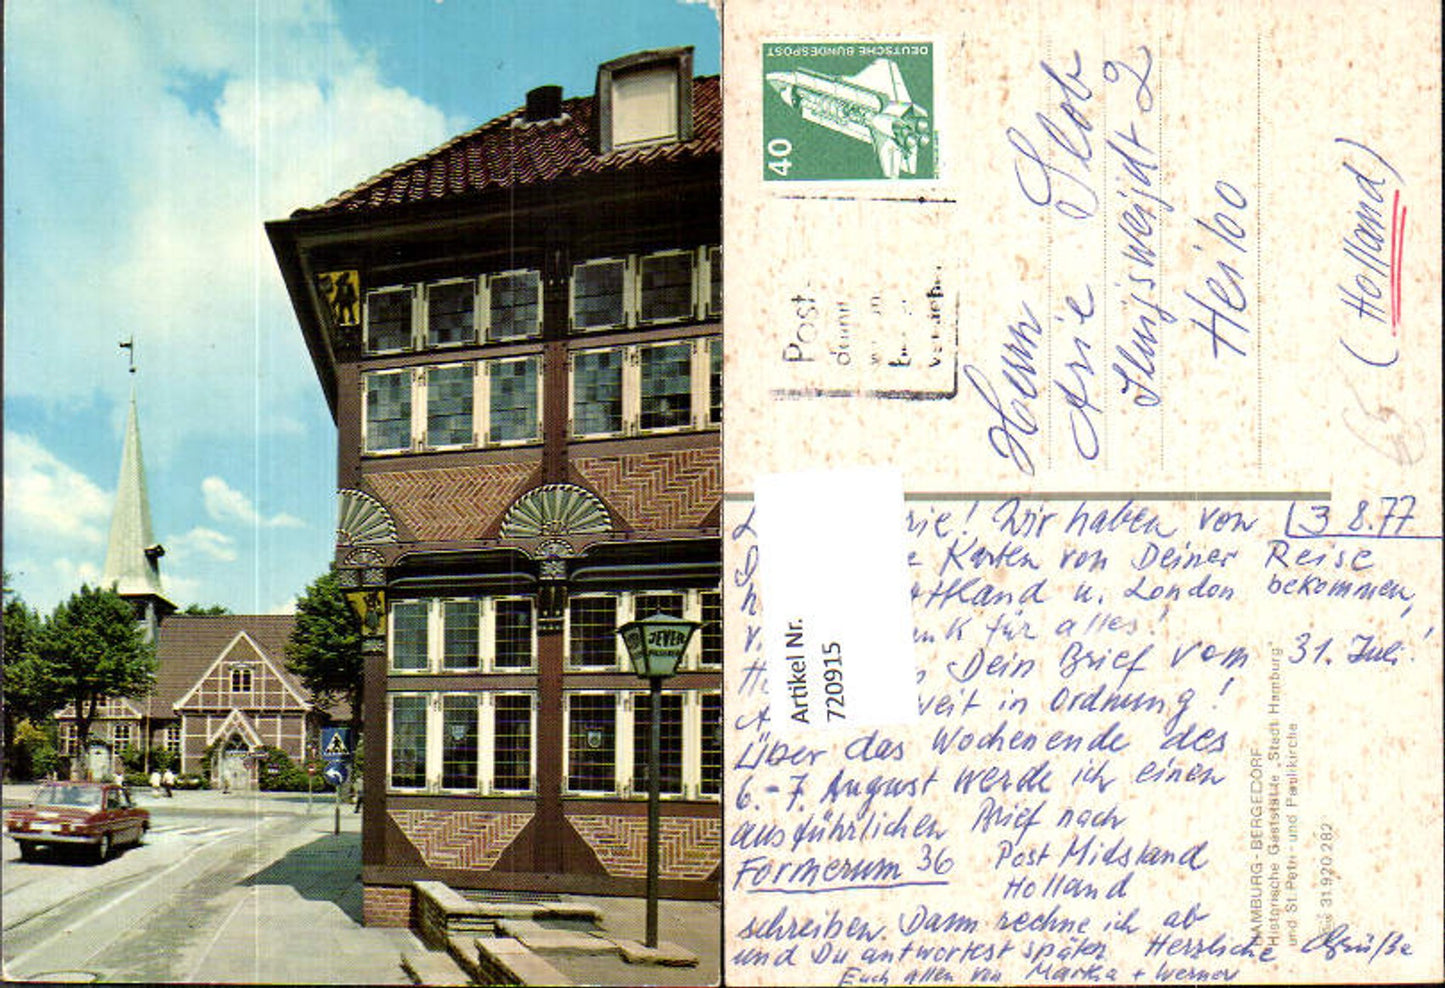 JEVER
DEUTSCHE BUNDESPOST
40
Post
Herrn
Arie Slob
2
Heiloo
(Holland)
65
Artikel Nr.
720915
3 8.77
rie! Wir haben von
Karten von Deiner Reise
ttland u. London bekommen,
nk für alles!
Dein Brief vom 31. Juli
weit in Ordnung!
Über das Wochenende des
6.-7. August werde ich einen
ausführlichen Brief nach
Formerum 36 Post Midsland
Holland
schreiben. Dann rechne ich ab
und Du antwortest später. Herzliche Grüße
Euch allen von Marka + Werner
HAMBURG - BERGEDORF
"Historische Gaststätte „Stadt Hamburg"
und St. Petri- und Paulikirche
31 920 282